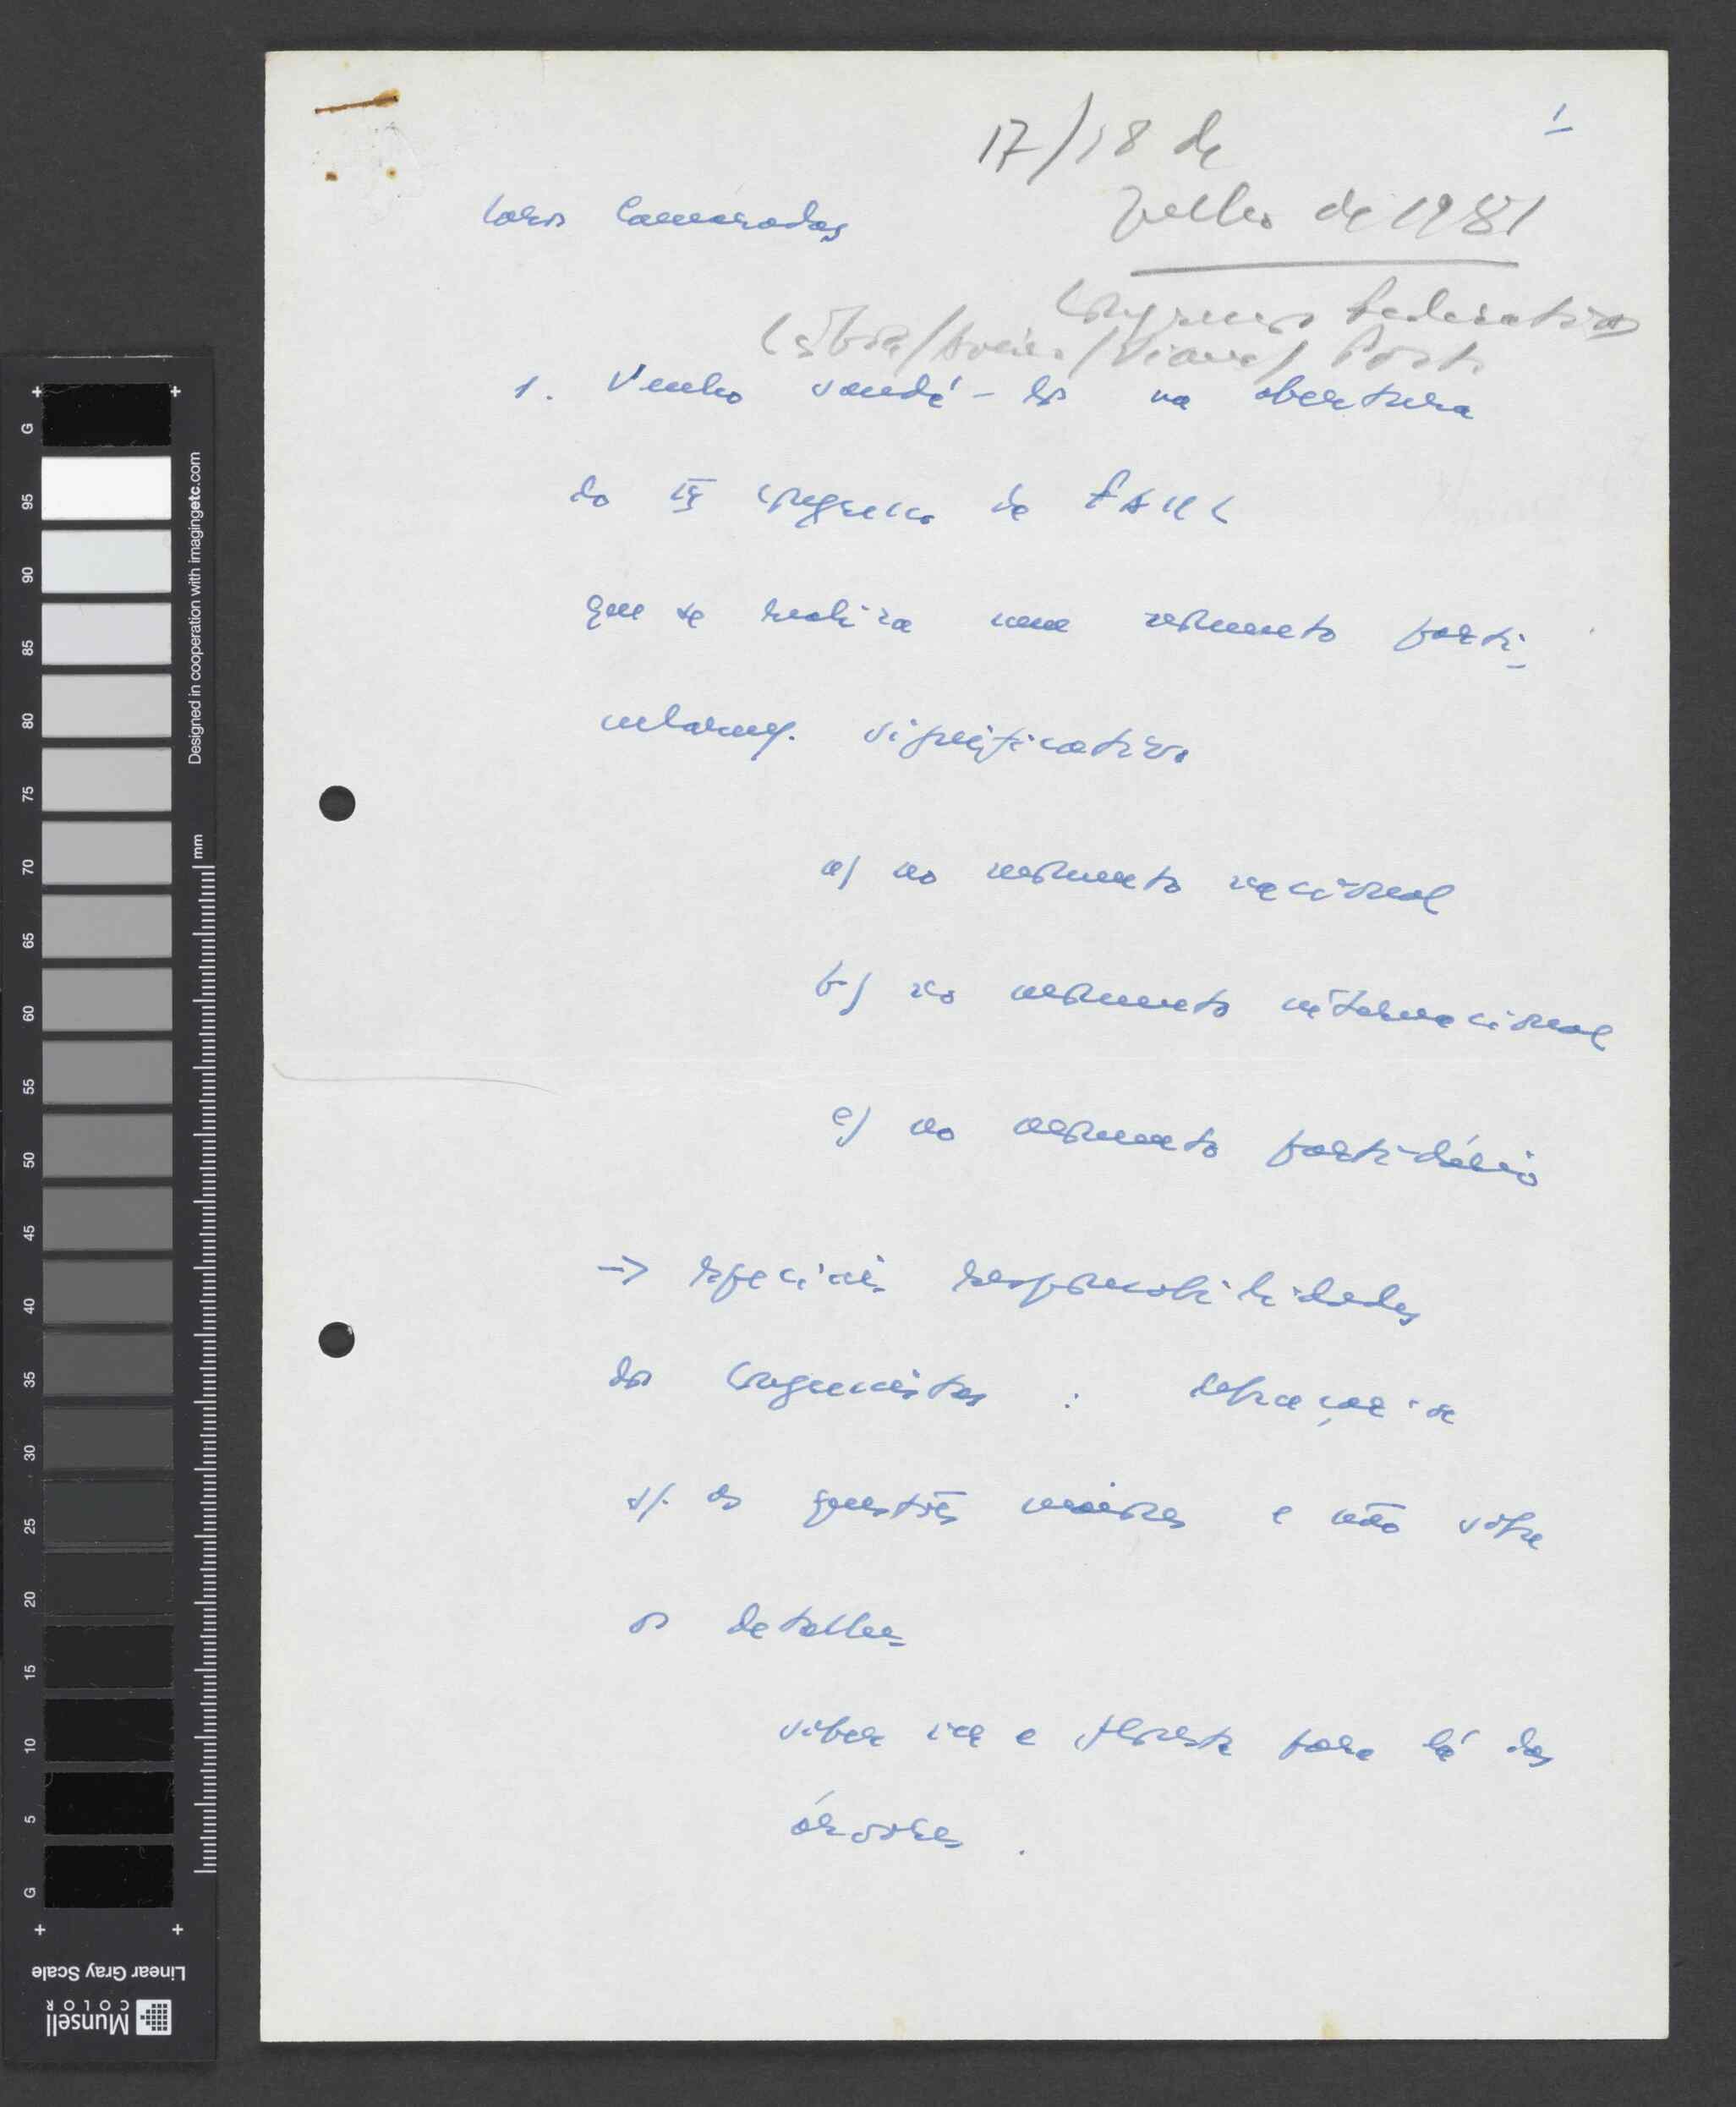 1
17/18 de
Julho de 1981
Caros Camaradas
Congressos Federativos
Cõbra/Aveiro/Viana/Porto
1. Venho saudá-los na abertura
do Congresso da
que se realiza num momento parti-
cularmᵉ. significativo
a) no momento nacional
b) no momento internacional
c) no momento partidário
-> especiais responsabilidades
dos Congressistas : debruçar-se
s/. as questões maiores e não sobre
os detalhes
saber ver a floresta para lá das
árvores .
G
95
90
85
80
75
70
65
60
55
50
45
40
35
30
25
20
15
10
5
G
mm
Designed in cooperation with imagingetc.com
Linear Gray Scale
Munsell
COLOR